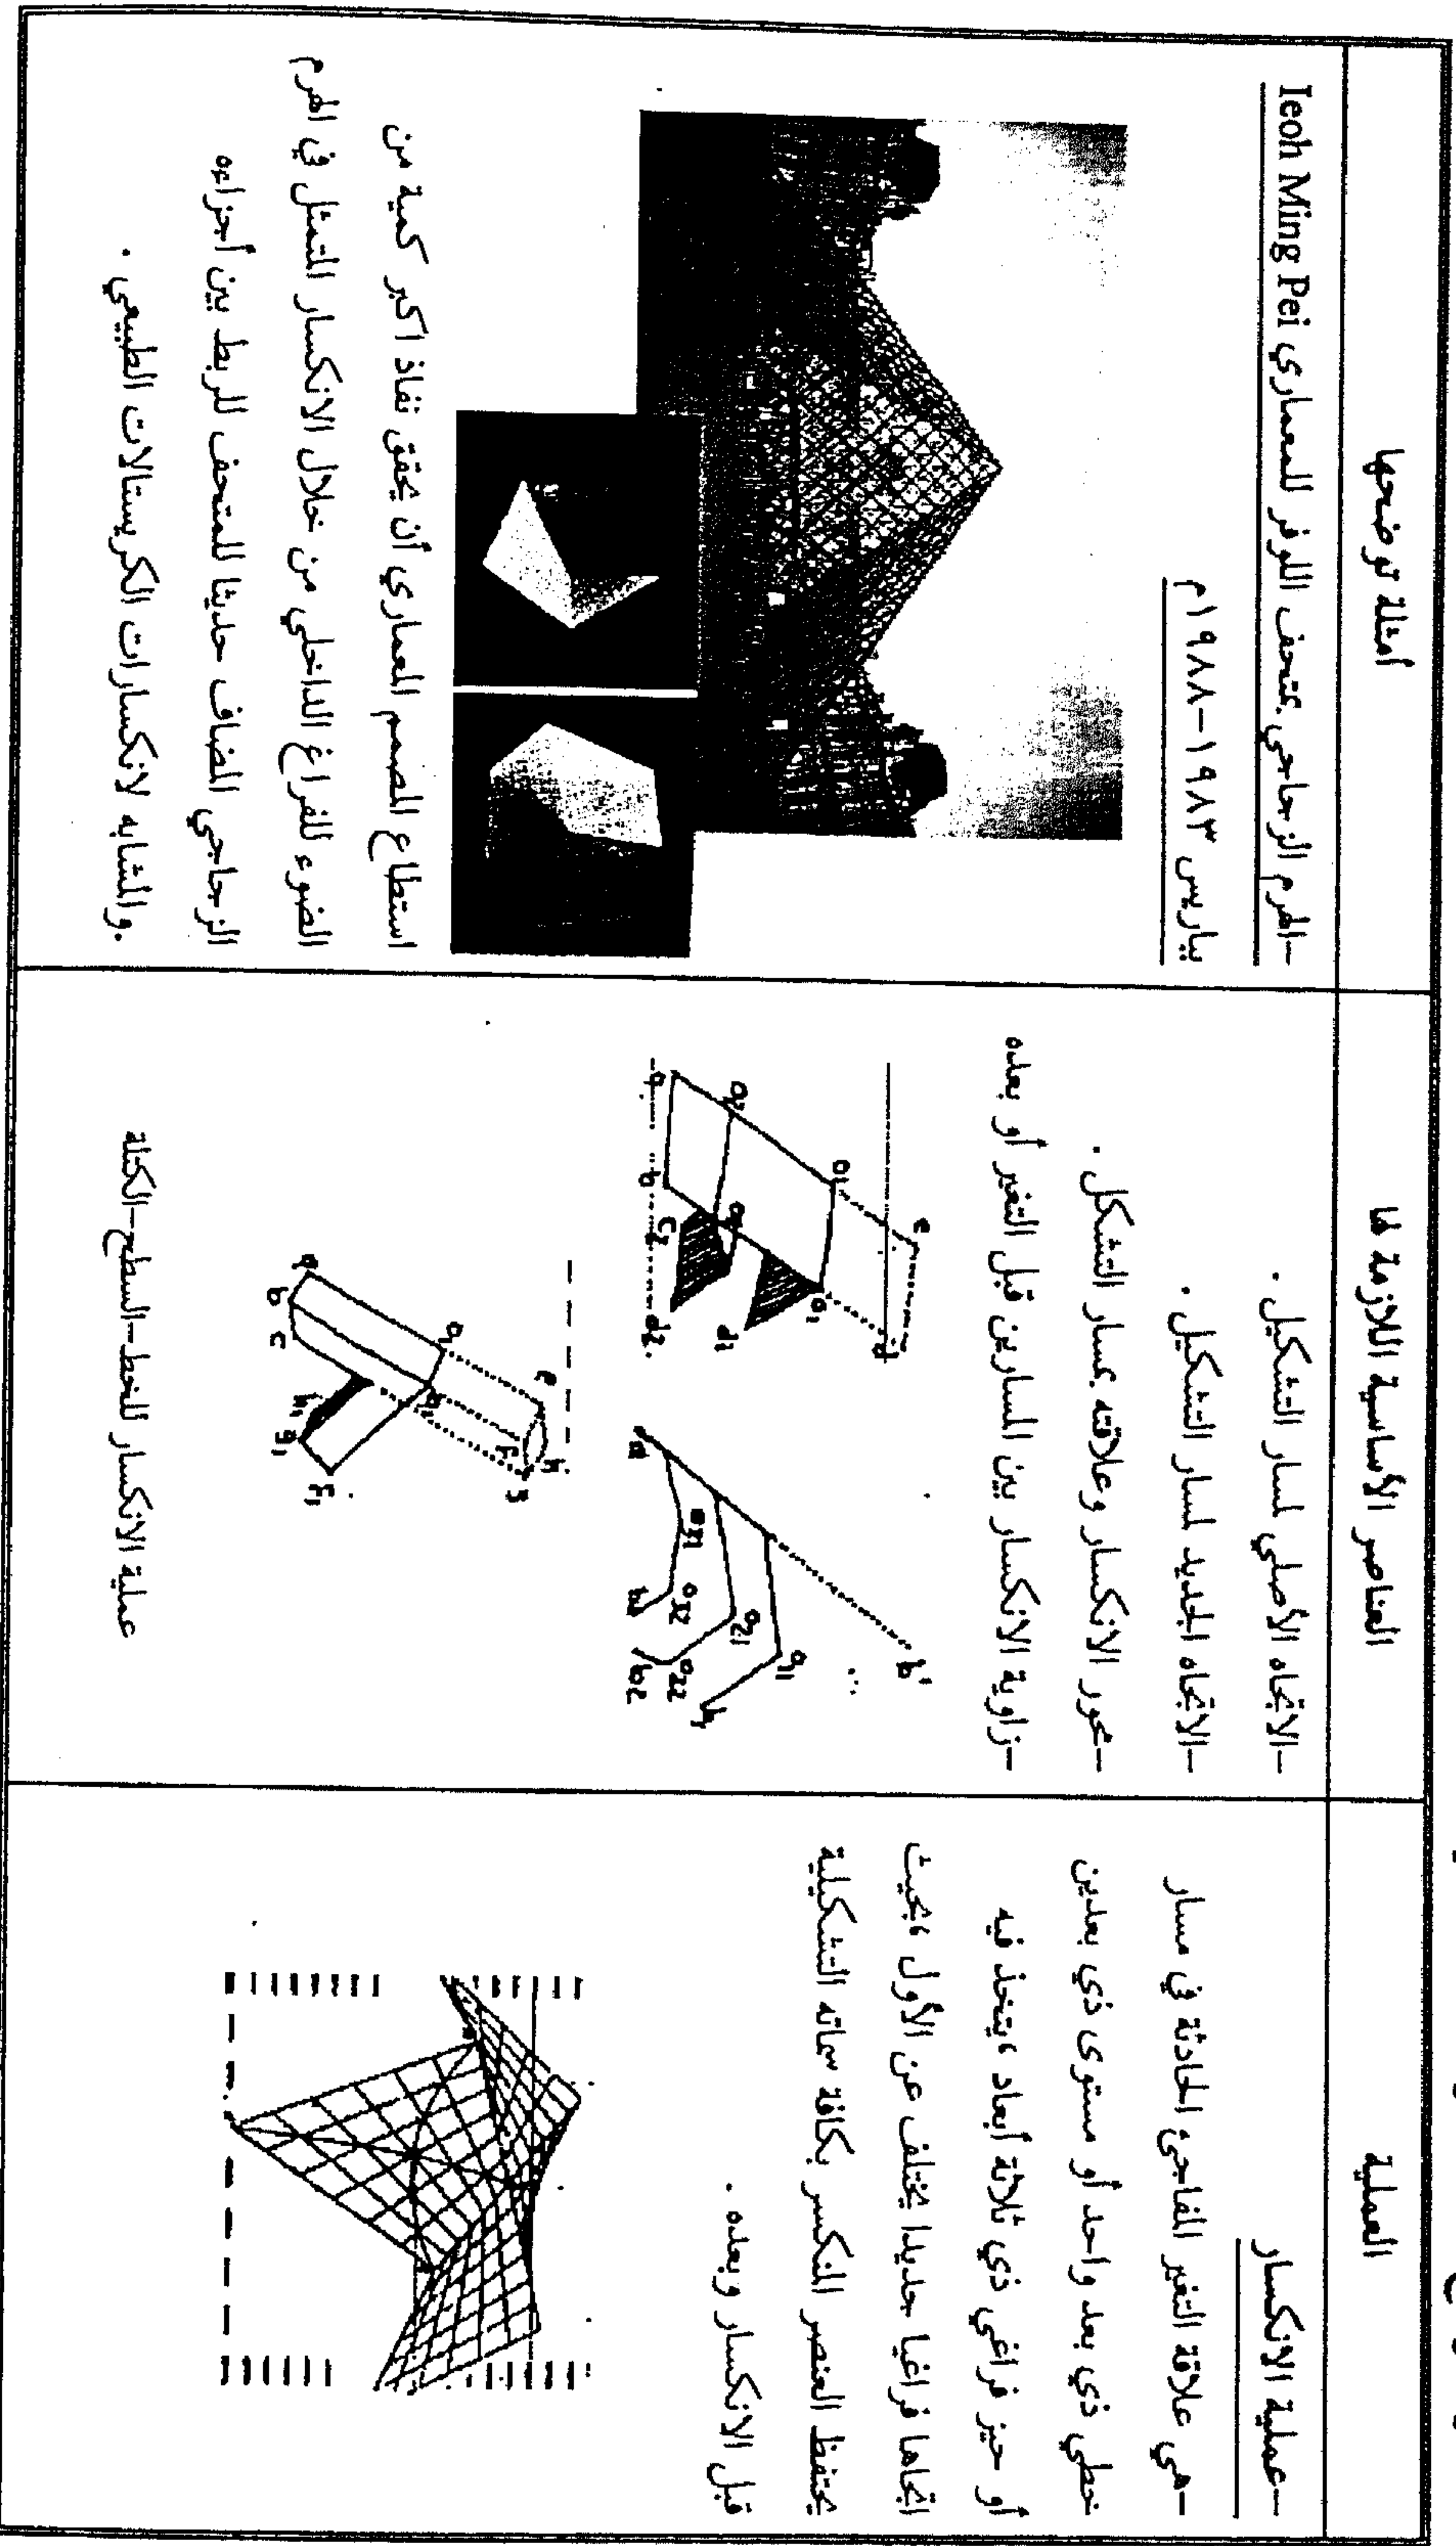 العملية
العناصر الأساسية اللازمة لها
أمثلة توضحها
-عملية الانكسار
-هي علاقة التغير المفاجئ الحادثة في مسار
خطي ذي بعد واحد أو مستوى ذي بعدين
أو حيز فراغي ذي ثلاثة أبعاد ،يتخذ فيه
اتجاها فراغيا جديدا يختلف عن الأول ،بحيث
يحتفظ العنصر المنكسر بكافة سماته التشكيلية
قبل الانكسار وبعده .
-الاتجاه الأصلي لمسار التشكيل .
-الاتجاه الجديد لمسار التشكيل .
-محور الانكسار وعلاقته بمسار التشكل .
-زاوية الانكسار بين المسارين قبل التغير أو بعده
عملية الانكسار للخط-السطح-الكتلة
-الهرم الزجاجي بمتحف اللوفر للمعماري Ieoh Ming Pei
بباريس ١٩٨٣-١٩٨٨م
استطاع المصمم المعماري أن يحقق نفاذ اكبر كمية من
الضوء للفراغ الداخلي من خلال الانكسار المتمثل في الهرم
الزجاجي المضاف حديثا للمتحف للربط بين أجزاءه
.والمشابه لانكسارات الكريستالات الطبيعي .